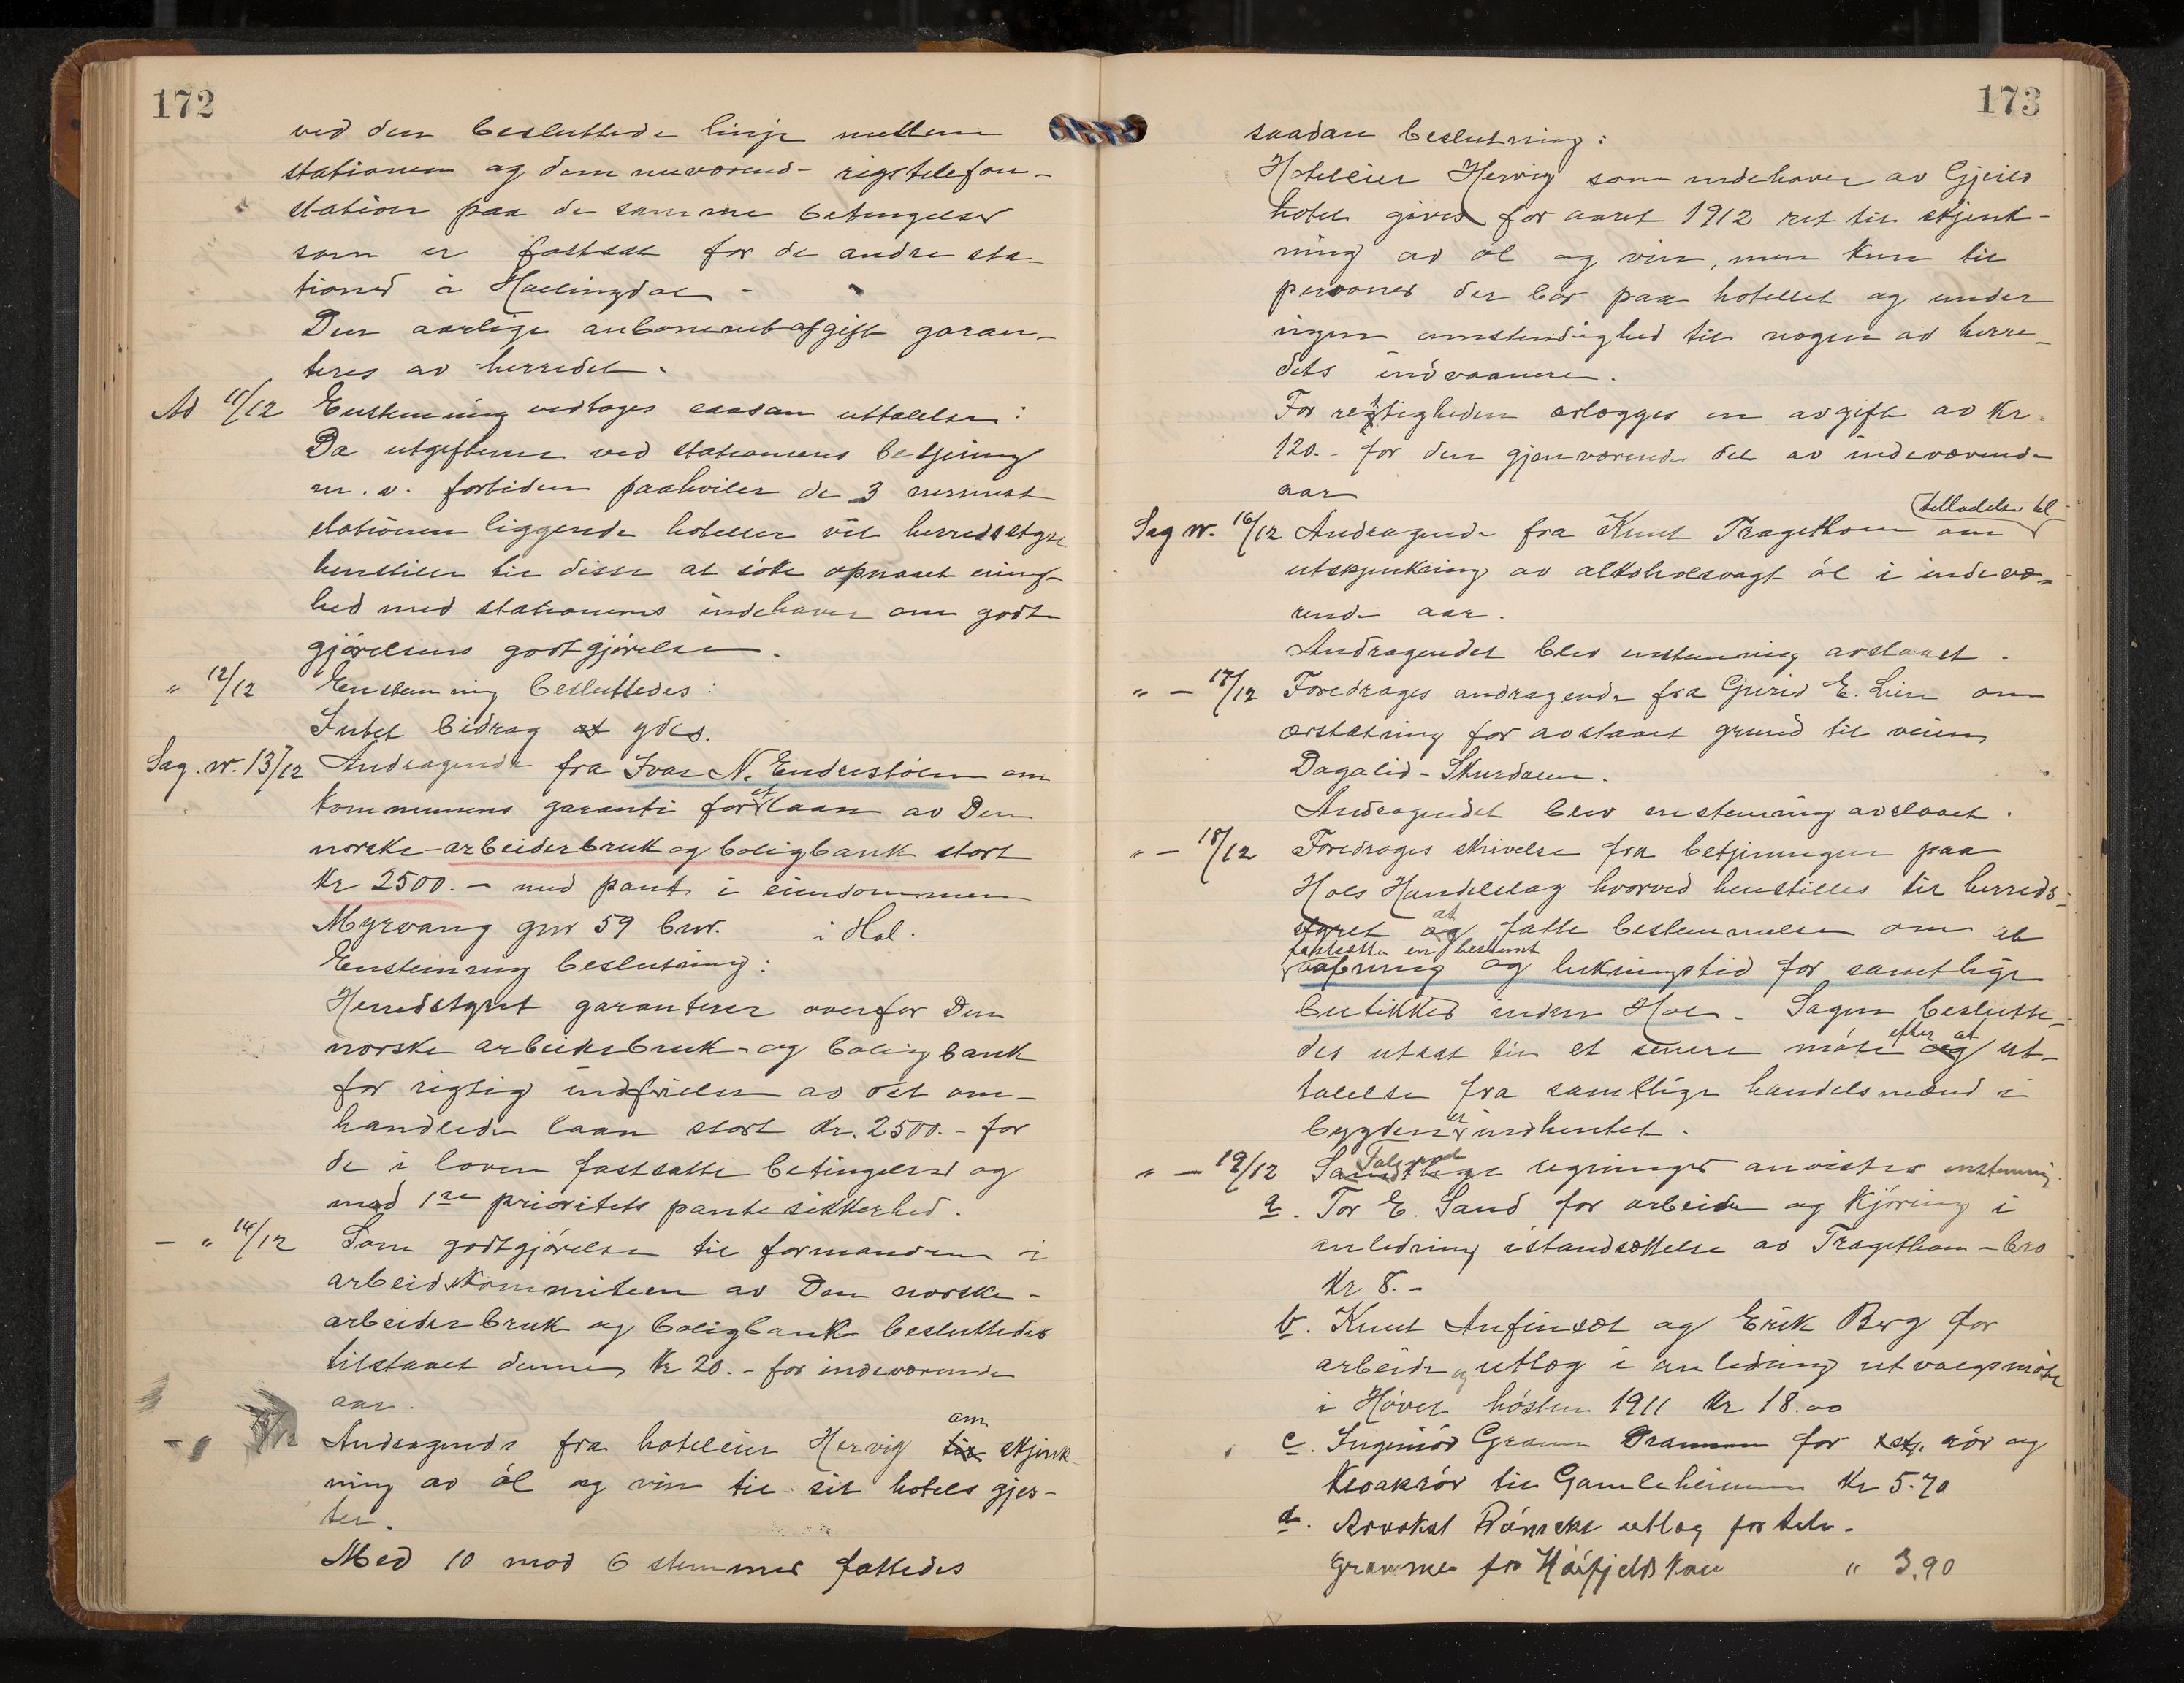 172
ved den besluttede linje mellem
stationen og den nuværende rigstelefon-
station paa de samme betingelser
som er fastsat for de andre sta-
tioner i Hallingdal -
Den aarlige anbonnentafgift garan-
teres av herredet.
Ad 11/12 Enstemmig vedtoges saadan uttalelse:
Da utgifterne ved stationens betjening
m.v. fortiden paahviler de 3 nermest
stationen liggende hoteller vil herredsstyret
henstille til disse at söke opnaaet enig-
hed med stationens indehaver om godt
gjörelsens godtgjörelse.
" 12/12 Enstemmig besluttedes:
Intet bidrag at ydes.
Sag nr. 13/12 Andragende fra Ivar N. Endrestölen om
kommunens garanti for et laan av Den
norske arbeiderbruk og boligbank stort
Kr 2500.- med pant i eiendommen
Myrvang gnr 59 bnr. i Hol.
Enstemmig beslutning:
Herredstyret garanterer overfor Den
norske arbeiderbruk- og boligbank
for rigtig indfrielse av det om-
handlede laan stort Kr. 2500.- for
de i loven fastsatte betingelser og
mod 1ste prioritets pantesikkerhed.
- " 14/12 Som godtgjörelse til formanden i
arbeidskommiteen av Den norske-
arbeiderbruk og boligbank besluttedes
tilstaaet denne Kr 20.- for indeværende
aar.
Andragende fra hoteleier Hervig til om skjenk-
ning av öl og vin til sit hotels gjes-
ter.
Med 10 mod 6 stemmer fattedes
173
saadan beslutning:
Hoteleier Hervig som indehaver av Gjeilo
hotel gives for aaret 1912 ret til skjenk-
ning av öl og vin, men kun til
personer der bor paa hotellet og under
ingen omstendighed til nogen av herre-
dets indvaanere.
For rettigheden erlægges en avgift av Kr.
120.- for den gjenværende del av indeværende
aar
Sag nr. 16/12 Andragende fra Knut Tragethon om tilladelse til
utskjenkning av alkoholsvagt öl i indevæ-
rende aar.
Andragendet blev enstemmig avslaaet.
" - 17/12 Foredrages andragende fra Guri E. Lien om
erstatning for avstaaet grund til veien
Dagalid - Skurdalen.
Andragendet blev enstemmig avslaaet.
" - 18/12 Foredrages skrivelse fra betjeningen paa
Hols Handelslag hvorved henstilles til herreds-
styret og at fatte bestemmelse om at
fastsætte en bestemt
aapning og lukningstid for samtlige
butikker inden Hol. Sagen beslutte-
des utsat til et senere möte og efter at ut-
talelse fra samtlige handelsmænd i
bygden er indhentet.
" - 19/12 Samtlige Følgende regninger anvistes enstemmig.
a. Tor E. Sand for arbeide og kjöring i
anledning istandsættelse av Tragethon-bro
Kr 8.-
b. Knut Anfinset og Erik Berg for
arbeide og utlæg i anledning utvalgsmöte
i Hövel hösten 1911 Kr 18.00
c. Ingeniör Gram Drammen for rör og
kloakrör til Gamleheimen Kr 5.70
d. Advokat utlæg for tele-
grammer fra Höifjeldskau " 3.90